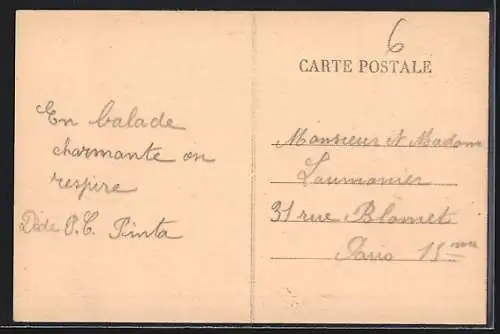 En balade
charmante on
respire
Dide P.C. Pinta
6
CARTE POSTALE
Monsieur et Madame
Laumonier
31 rue Blomet
Paris 15ème